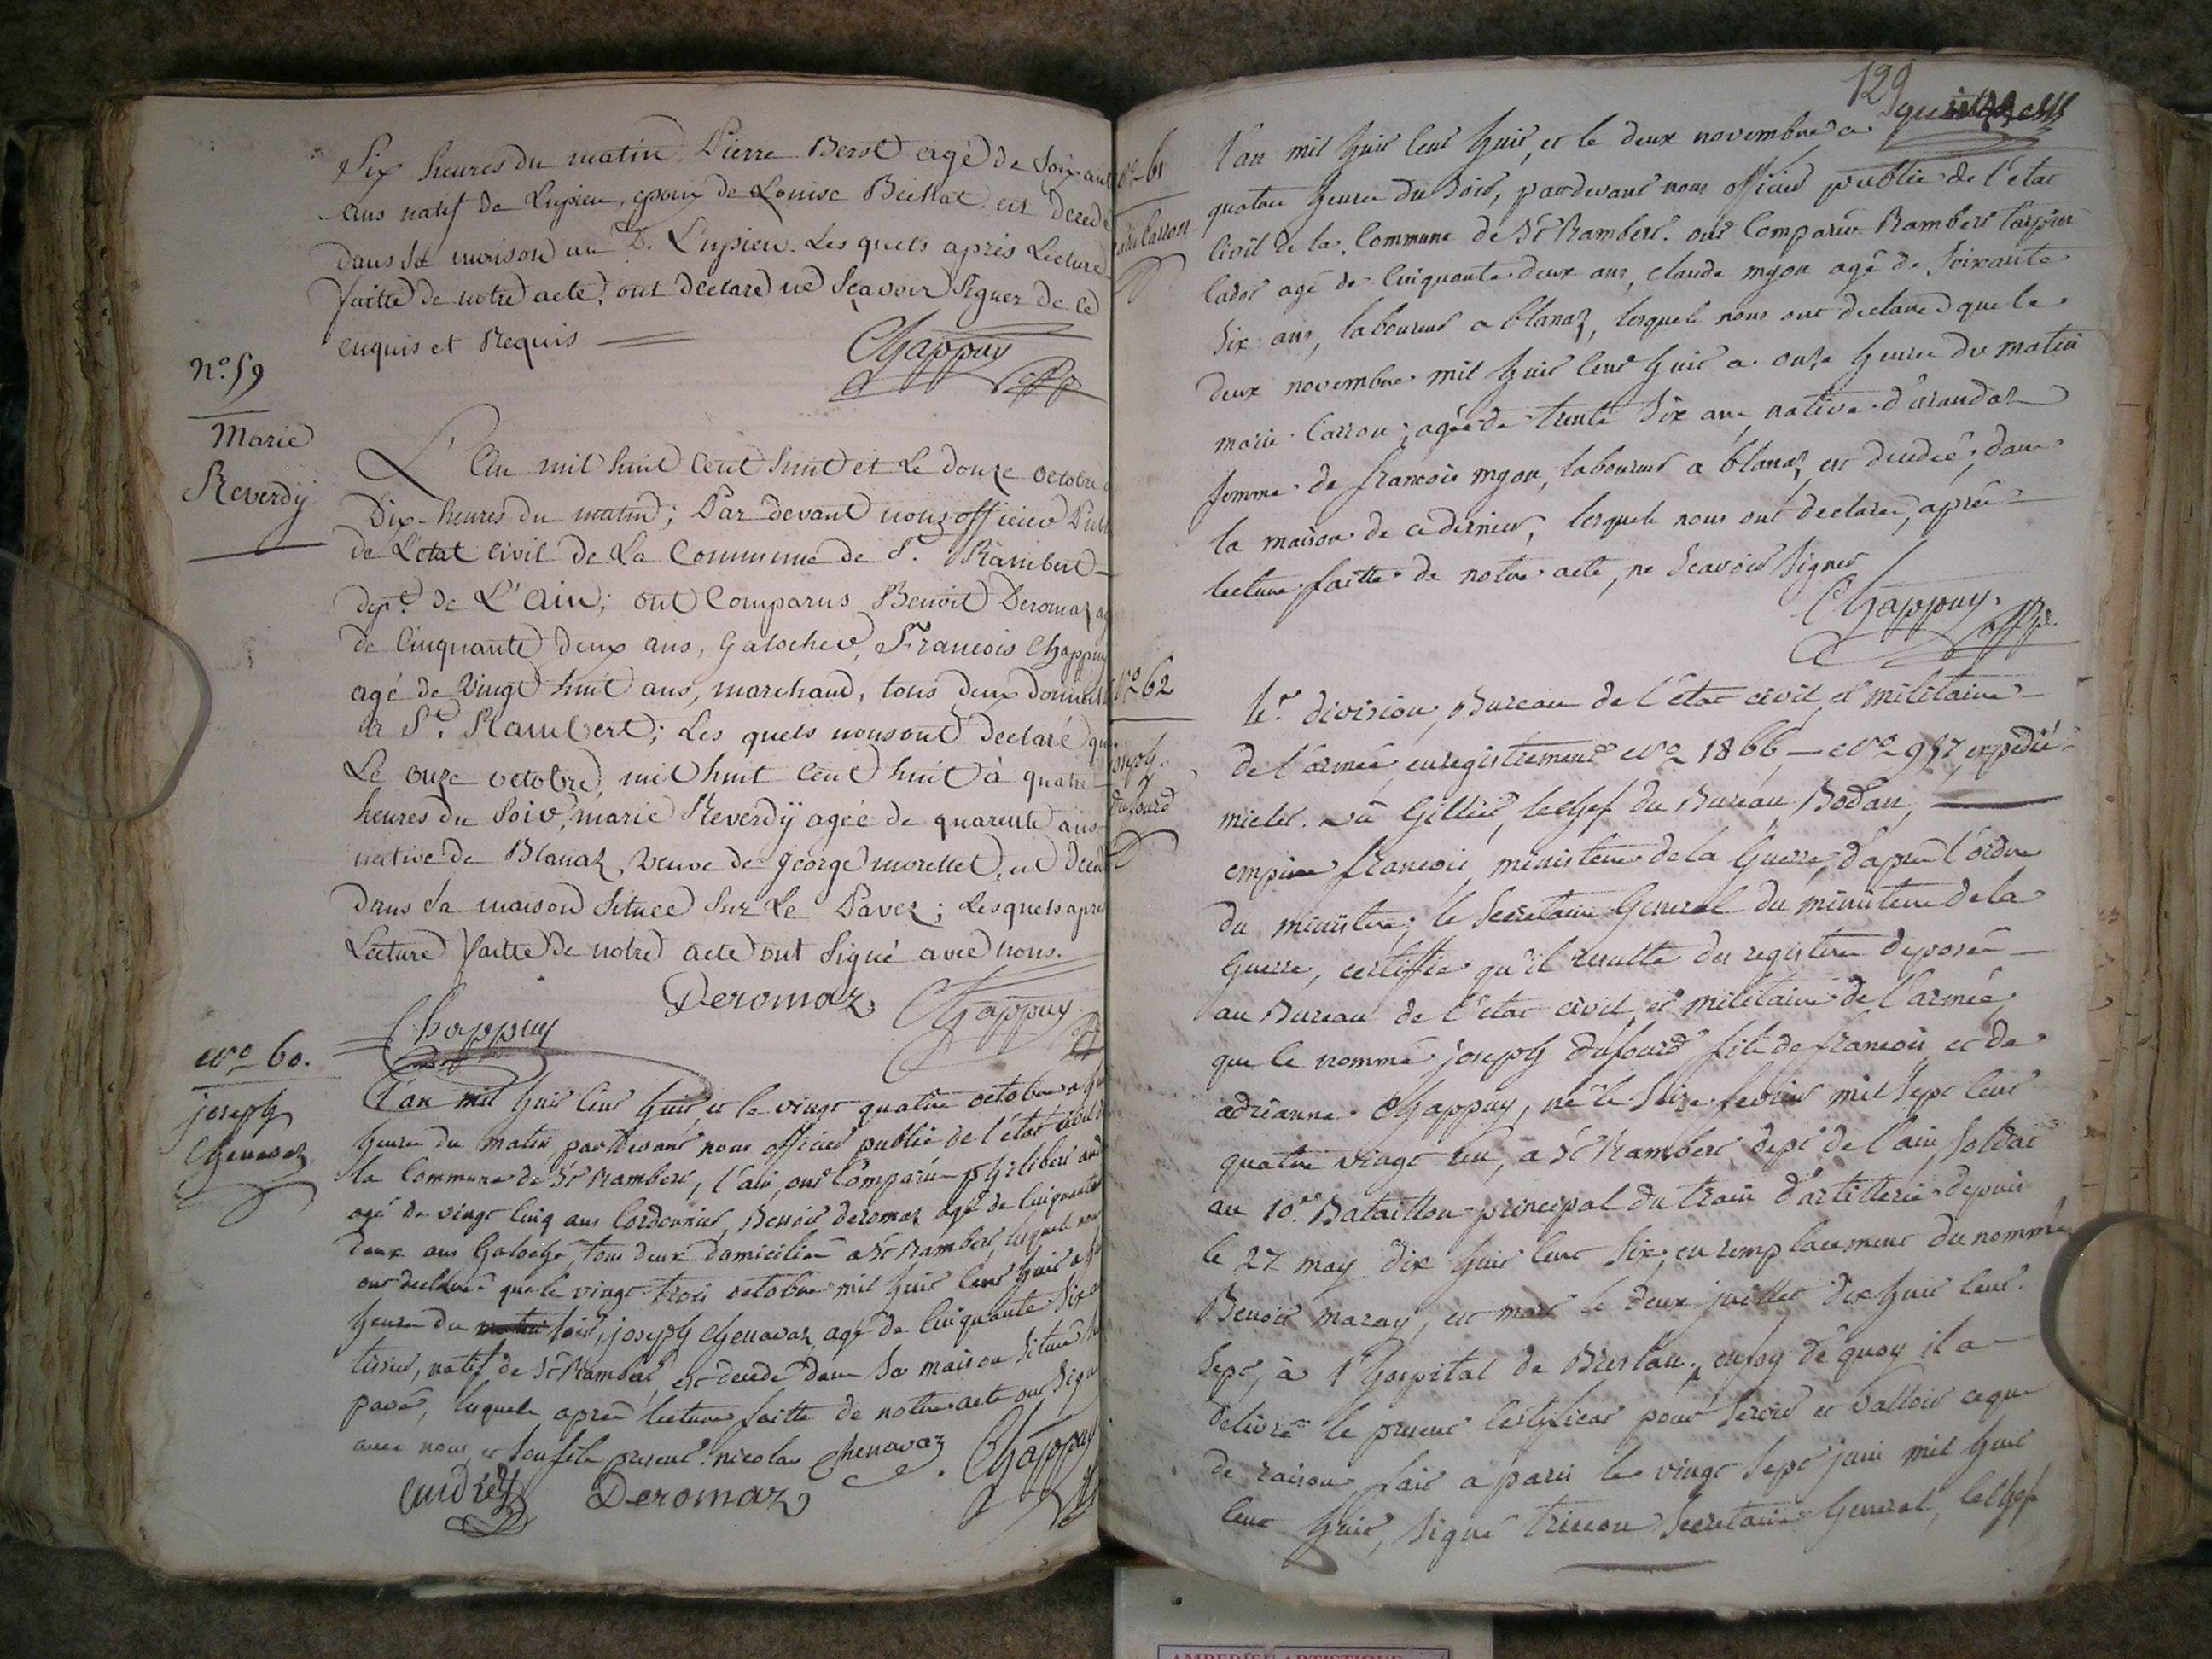 Six heures du matin, Pierre Berst agé de Soixant
ans natif de Lupieu, epoux de Louise est decedé
dans Sa maison au d. Lupieu. Les quels après Lecture
faitte de notre acte, ont declaré ne Scavoir Signer de ce
enquis et Requis
Chappuy
Nº. 59
Marie
Reverdÿ
L'an mil huit Cent huit et Le douze octobre
Dix heures du matin; Par devant nous officier Publ
de L'etat Civil de La Commune de St. Rambert
dept. de L'ain; ont Comparus Benoit Deromaz ag
de Cinquante deux ans, Galocher, François Chappuy
agé de Vingt huit ans, marchand, tous deux domicil
à St. Rambert; Les quels nous ont declaré que
Le onze octobre, mil huit Cent huit à quatre
heures du Soir, marie Reverdÿ agée de quarente ans
native de Blanaz, Veuve de george morellet, est deced
dans Sa maison Située Sur Le Pavez; Lesquels après
Lecture faitte de notre acte ont Signé avec nous.
Deromaz Chappuy
Chappuy
Nº 60.
joseph
Chenavaz
L'an mil huit Cent huit et le vingt quatre octobre a
heures du matin, pardevant nous officier public de l'état civil d
la Commune de St Rambert, l'ain, ont Comparu philibert and
agé de vingt Cinq ans Cordonnier, Benoit deromaz agé de Cinquante
deux ans Galoche, tous deux domiciliés a St Rambert, lesquels nous
ont declaré que le vingt trois octobre mil huit Cent huit a
heures du matin Soir, joseph Chenavaz, agé de Cinquante Six
tissier, natif de St Rambert est decedé dans Sa maison Située
pavé, lesquels après lecture faitte de notre acte ont Signé
avec nous et Son fils present. nicolas Chenavaz Chappuy
andréz Deromaz
129
Nº 61
Carron
l'an mil huit Cent huit, et le deux novembre a
quatre heures du Soir, pardevant nous officier public de l'état
Civil de la Commune de St Rambert. ont Comparu Rambert
agé de Cinquante deux ans, claude myon agé de Soixante
Six ans, laboureurs a blanaz, lesquels nous ont declaré que le
deux novembre mil huit Cent huit a onze heures du matin
marie Carron, agée de trente Six ans, native d'arandaz
femme de françois myon, laboureur a blanaz, est decedée, dans
la maison de ce dernier, lesquels nous ont declaré, après
lecture faitte de notre acte, ne Scavoir Signer
Chappuy
Nº 62
joseph
dufourd
1ere. division, Bureau de l'état civil et militaire
de l'armée, enregistrement Nº 1866 — Nº 957, expedié
michel. vû Gillier, le chef du Bureau Bodan,
empire françois, ministere de la Guerre, d'après l'ordre
du ministre; le Secretaire General du ministere de la
Guerre, certiffie qu'il resulte des registres deposés
au Bureau de l'état civil et militaire de l'armée,
que le nommé joseph dufourd fils de françois et de
adrianne Chappuy, né le Seize fevrier mil Sept Cent
quatre vingt un, a St Rambert, dept de l'ain, Soldat
au 10e. Bataillon principal du train d'artillerie depuis
le 27 may dix huit Cent Six, en remplacement du nommé
Benoit maray, est mort le deux juillet dix huit Cent
Sept, à l'hospital de Breslau; en foy de quoy il a
delivré le present Certificat pour Servir et valloir ce que
de raison, fait a paris le vingt Sept juin mil huit
Cent huit, Signé trincon Secretaire General, le Chef